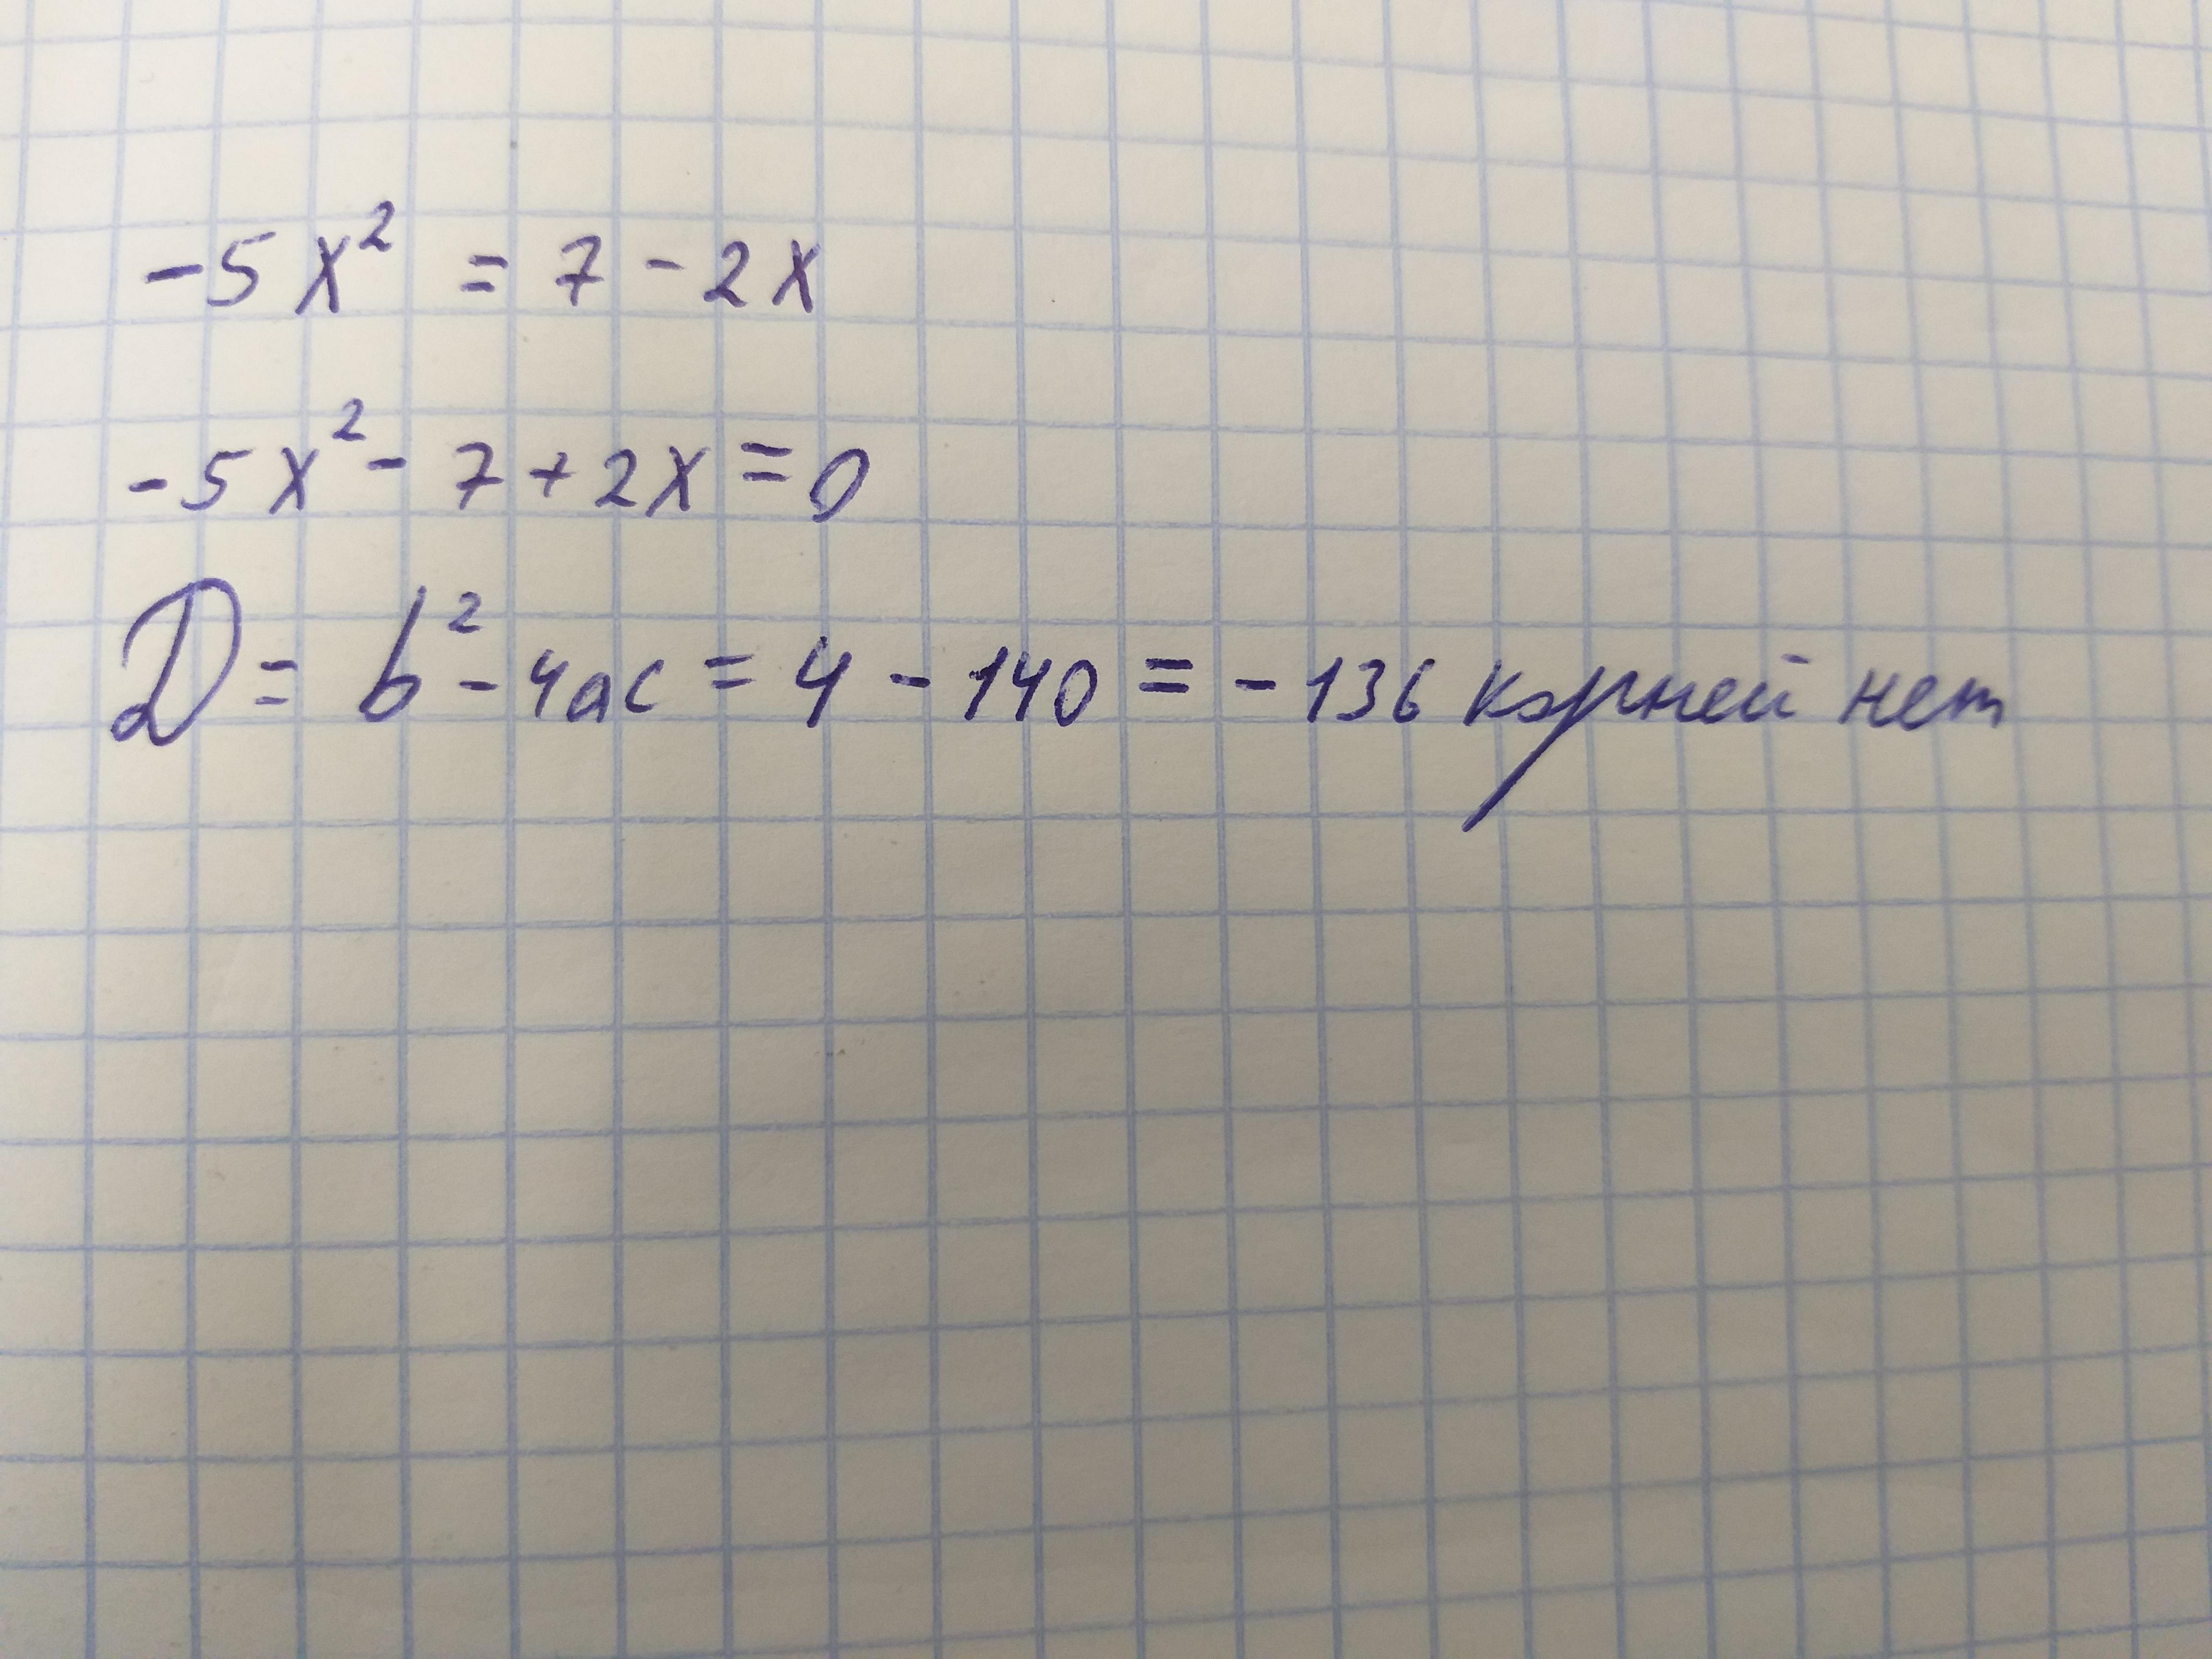 -5x² = 7 - 2x
-5x² - 7 + 2x = 0
D = b² - 4ac = 4 - 140 = -136 корней нет